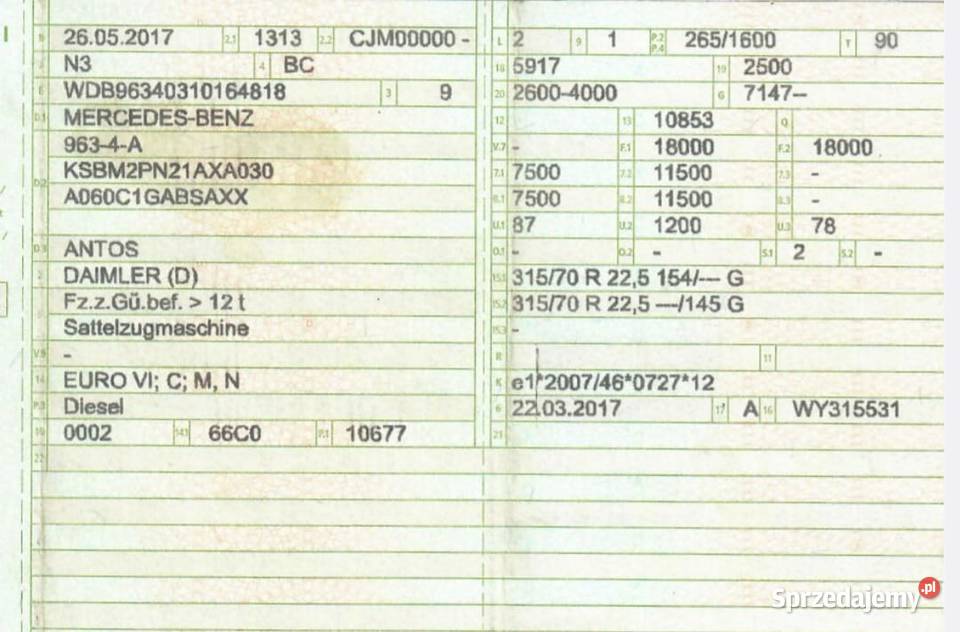 B 26.05.2017 2.1 1313 2.2 CJM00000 -
J N3 4 BC
E WDB96340310164818 3 9
D.1 MERCEDES-BENZ
963-4-A
D.2 KSBM2PN21AXA030
A060C1GABSAXX
D.3 ANTOS
2 DAIMLER (D)
5 Fz.z.Gü.bef. > 12 t
Sattelzugmaschine
V.9 -
14 EURO VI; C; M, N
P.3 Diesel
10 0002 14.1 66C0 P.1 10677
22
L 2 9 1 P.2 P.4 265/1600 T 90
18 5917 19 2500
20 2600-4000 G 7147--
12 13 10853 Q
V.7 - F.1 18000 F.2 18000
7.1 7500 7.2 11500 7.3 -
8.1 7500 8.2 11500 8.3 -
U.1 87 U.2 1200 U.3 78
O.1 - O.2 - S.1 2 S.2 -
15.1 315/70 R 22,5 154/--- G
15.2 315/70 R 22,5 ---/145 G
15.3 -
R 11
K e1*2007/46*0727*12
6 22.03.2017 17 A 16 WY315531
21
Sprzedajemy .pl